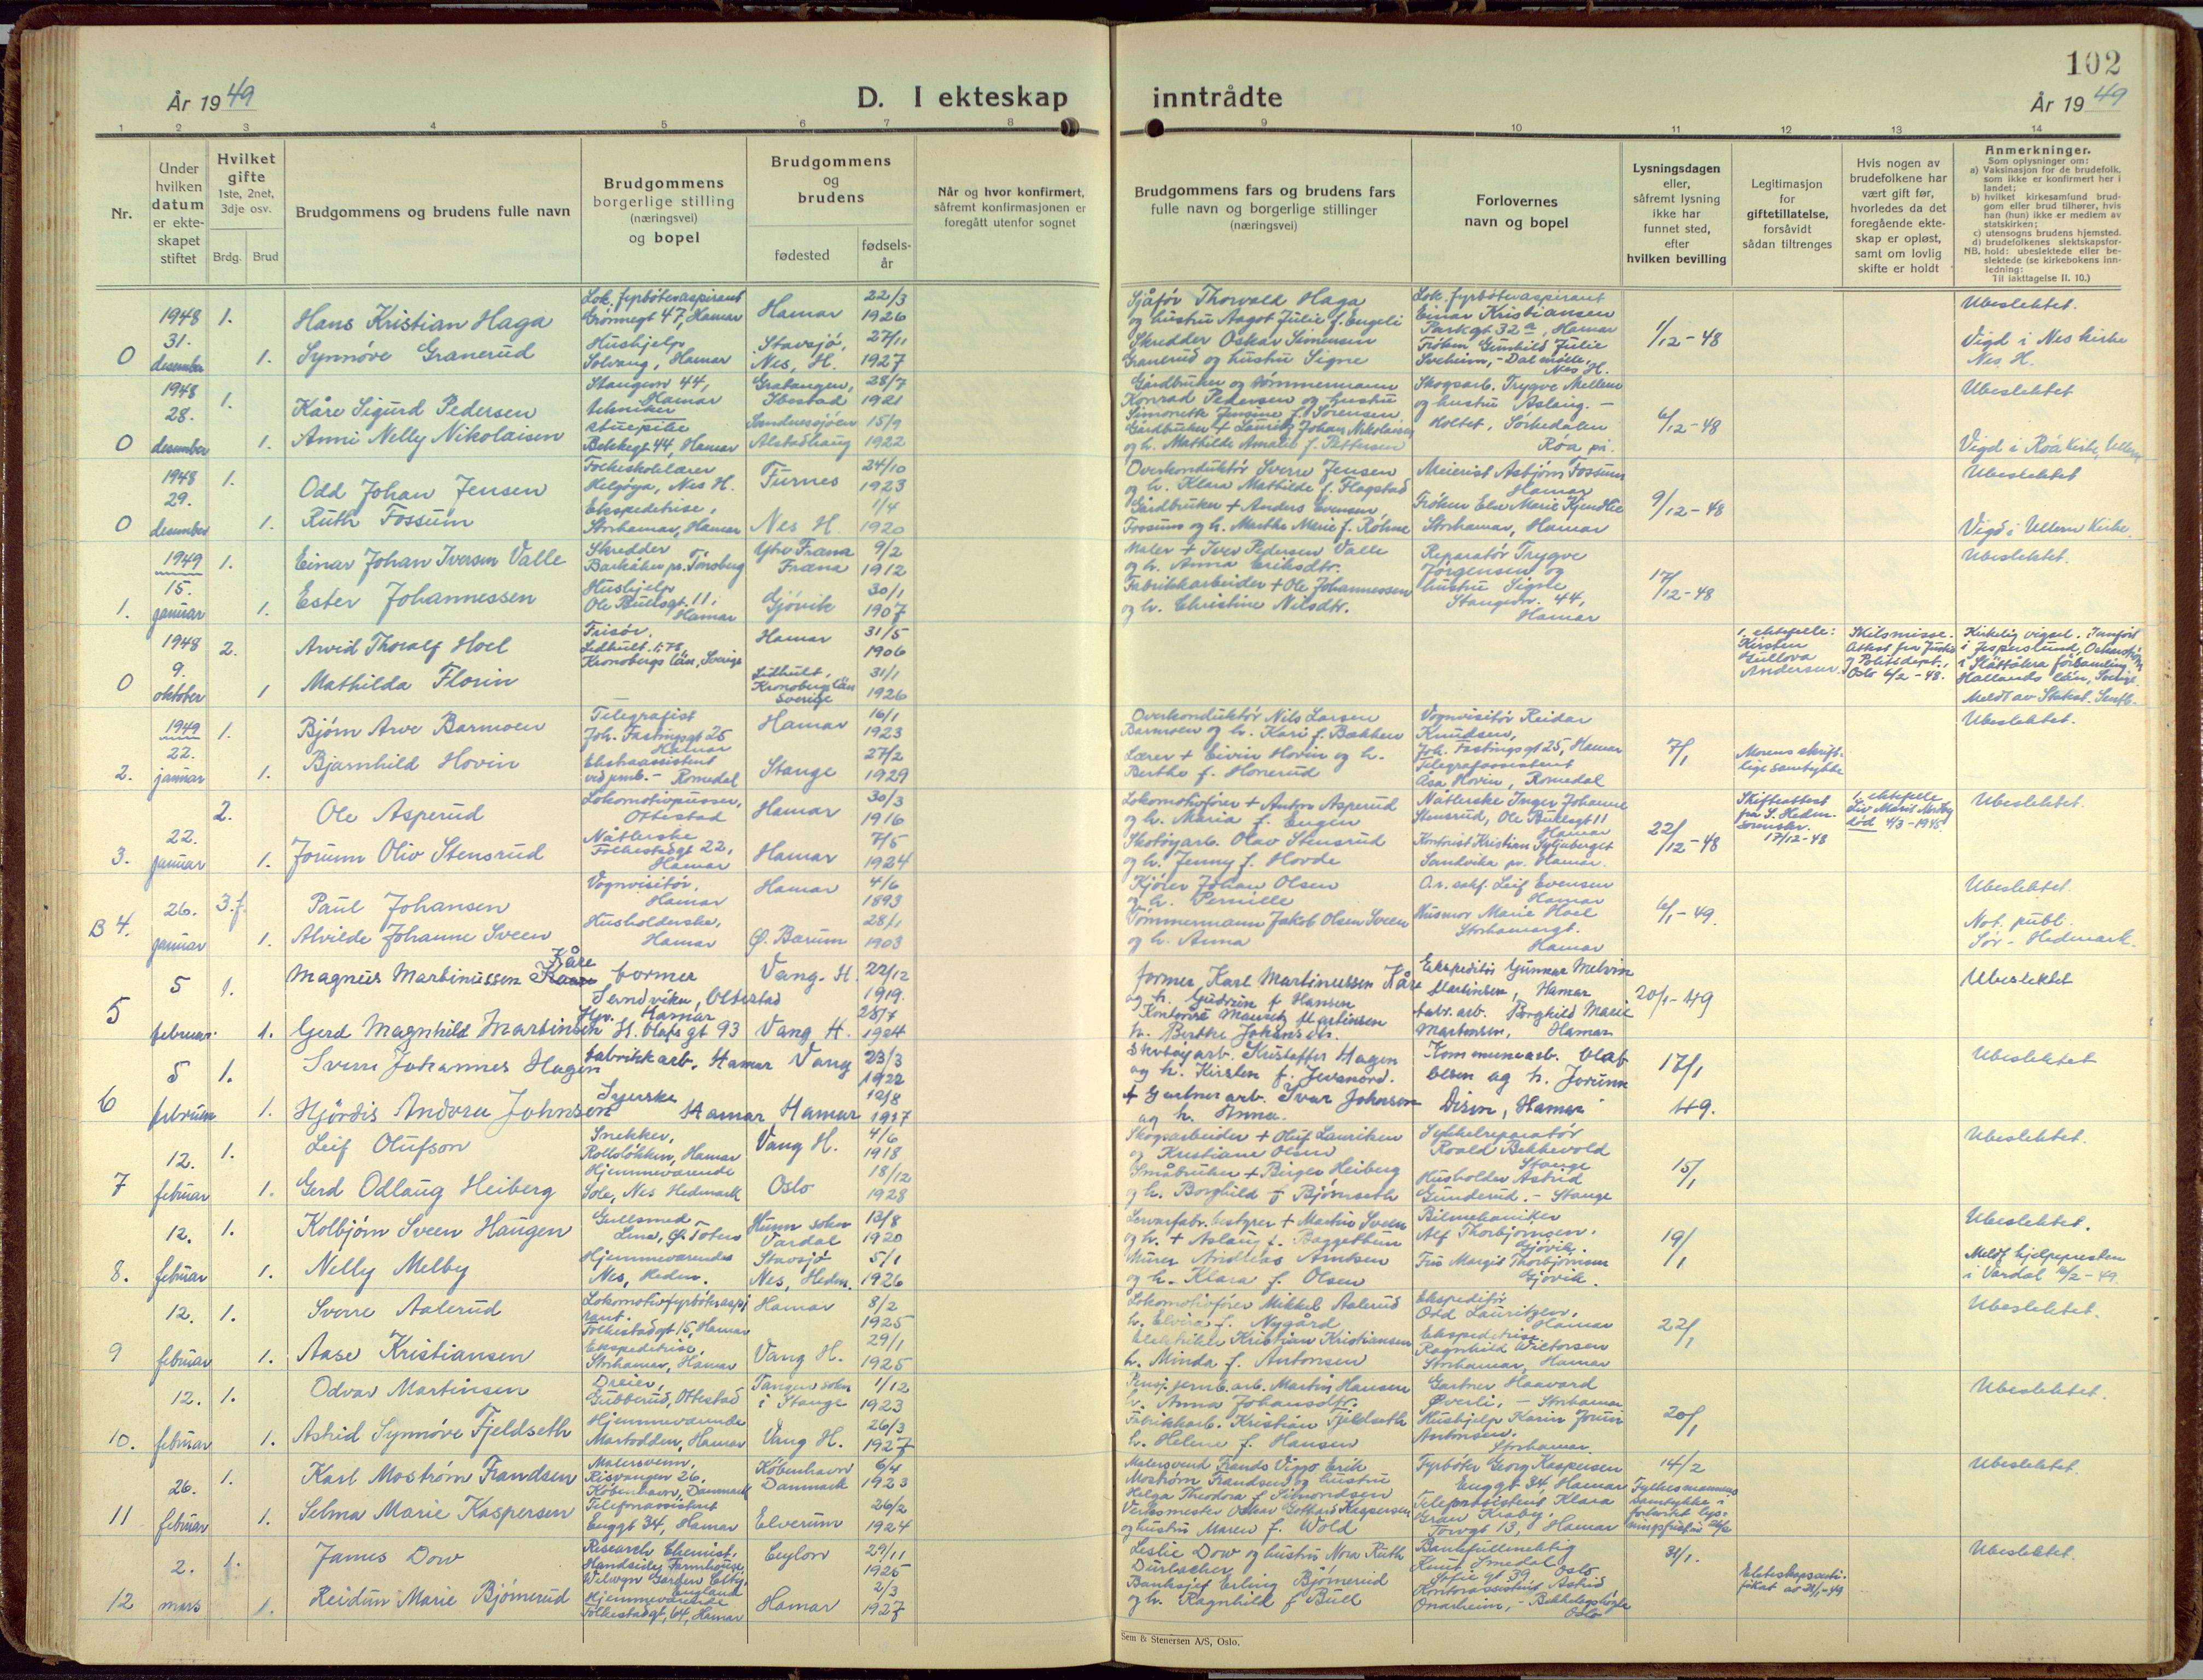 102
År 1949
D. I ekteskap inntrådte
År 1949
1 2 3 4 5 6 7 8 9 10 11 12 13 14
Nr.
Under hvilken datum er ekteskapet stiftet
Hvilket gifte 1ste, 2net, 3dje osv.
Brdg. Brud
Brudgommens og brudens fulle navn
Brudgommens borgerlige stilling (næringsvei) og bopel
Brudgommens og brudens
fødested
fødsels-år
Når og hvor konfirmert, såfremt konfirmasjonen er foregått utenfor sognet
Brudgommens fars og brudens fars fulle navn og borgerlige stillinger (næringsvei)
Forlovernes navn og bopel
Lysningsdagen eller, såfremt lysning ikke har funnet sted, efter hvilken bevilling
Legitimasjon for giftetillatelse, forsåvidt sådan tiltrenges
Hvis nogen av brudefolkene har vært gift før, hvorledes da det foregående ekteskap er opløst, samt om lovlig skifte er holdt
Anmerkninger.
Som oplysninger om:
a) Vaksinasjon for de brudefolk, som ikke er konfirmert her i landet;
b) hvilket kirkesamfund brudgom eller brud tilhører, hvis han (hun) ikke er medlem av statskirken;
c) utensogns brudens hjemsted.
d) brudefolkenes slektskapsforhold: ubeslektede eller beslektede (se kirkebokens innledning:
NB. Til iakttagelse II. 10.)
0
1948
31. desember
1.
Hans Kristian Haga
Lok. fyrbøteraspirant
Grønnegt 47, Hamar
Hamar
22/3 1926
Sjåfør Thorvald Haga
og hustru Aagot Julie f. Engeli
Lok. fyrbøteraspirant
Einar Kristiansen
Parkgt 32a, Hamar
1/12-48
Ubeslektet.
1.
Synnøve Granerud
Hushjelp
Solvang, Hamar
Stavsjø, Nes, H.
27/11 1927
Skredder Oskar Simensen
Granerud og hustru Signe
Frøken Gunhild Julie
Sveheim, - Dal mølle,
Nes H.
Vigd i Nes kirke
Nes H.
0
1948
28. desember
1.
Kåre Sigurd Pedersen
Stangevn 44,
Hamar
tekniker
Gratangen, Ibestad
28/7 1921
Gårdbruker og tømmermann
Konrad Pedersen og hustru
Simonette Jensine f. Sørensen
Skogsarb. Trygve Mellem
og hustru Aslaug. -
6/12-48
Ubeslektet
1.
Anni Nelly Nikolaisen
stuepike
Bekkegt 44, Hamar
Sandnessjøen
Alstadhaug
15/9 1922
Gårdbruker + Lauritz Johan Nikolaisen
og h. Mathilde Amalie f. Pettersen
Holtet, Sørkedalen
Røa pr.
Vigd i Røa kirke,
0
1948
29. desember
1.
Odd Johan Jensen
Folkeskolelærer
Helgøya, Nes H.
Furnes
24/10 1923
Overkonduktør Sverre Jensen
og h. Klara Mathilde f. Flagstad
Meierist Asbjørn Fossum
Hamar
9/12-48
Ubeslektet
1.
Ruth Fossum
Ekspeditrise,
Storhamar, Hamar
Nes H.
1/4 1920
Gårdbruker + Anders Evensen
Fossum og h. Marthe Marie f. Røhne
Frøken Else Marie Kjendlie
Storhamar, Hamar
Vigd i Ullern kirke.
1.
1949
15. januar
1.
Einar Johan Iversen Valle
Skredder
Barkåker pr. Tønsberg
Ytre Fræna
Fræna
9/2 1912
Maler + Iver Pedersen Valle
og h. Anna Eriksdtr.
Reparatør Trygve
Jørgensen og
hustru Signe
Stangevn. 44,
Hamar
17/12-48
Ubeslektet.
1.
Ester Johannessen
Hushjelp
Ole Bullsgt. 11,
Hamar
Gjøvik
30/1 1907
Fabrikkarbeider + Ole Johannessen
og h. Christine Nilsdtr.
0
1948
9. oktober
2.
Arvid Thoralf Hoel
Frisør.
Lidhult
Kronobergs län, Sverige
Hamar
31/5 1906
1. ektefelle:
Kirsten
Gullova
Andersen.
Skilsmisse.
Attest fra Justis
og Politidept.,
Oslo 6/2-48.
Kirkelig vigsel.
1
Mathilda Florin
Lidhult,
Kronobergs län
Sverige
31/1 1926
Hallands län, Sverige.
Meldt av Statist. Sentb.
2.
1949
22. januar
1.
Bjørn Arve Barmoen
Telegrafist
Joh. Fastingsgt 25
Hamar
Hamar
16/1 1923
Overkonduktør Nils Larsen
Barmoen og h. Kari f. Bakken
Vognvisitør Reidar
Knudsen,
Joh. Fastingsgt 25, Hamar
7/1
Morens skriftlige samtykke
Ubeslektet.
1.
Bjarnhild Hovin
Ekstraassistent
ved jernb. - Romedal
Stange
27/2 1929
Lærer + Eivin Hovin og h.
Berthe f. Honerud
Telegrafassistent
Åsa Hovin, Romedal
3.
22. januar
2.
Ole Asperud
Lokomotivpusser,
Ottestad
Hamar
30/3 1916
Lokomotivfører + Anton Asperud
og h. Maria f. Engen
Nåtlerske Inger Johanne
Stensrud, Ole Bullsgt 11
Hamar
22/12-48
Skifteattest
fra S. Hedm.
sorenskr.
17/12-48
1. ektefelle
Liv Marit
død 4/3-1945
Ubeslektet.
1.
Jorunn Oliv Stensrud
Nåtlerske
Folkestadgt 22,
Hamar
Hamar
7/5 1924
Skotøyarb. Olav Stensrud
og h. Jenny f. Hovde
Kontorist Kristian Syljuberget
Sandvika pr. Hamar.
B 4.
26. januar
3. f.
Paul Johansen
Vognvisitør,
Hamar
Hamar
4/6 1893
Kjører Johan Olsen
og h. Pernille
O.r. sakf. Leif Evensen
Hamar
6/1-49.
Ubeslektet.
1.
Alvilde Johanne Sveen
Husholderske,
Hamar
Ø. Bærum
28/1 1903
Tømmermann Jakob Olsen Sveen
og h. Anna
Husmor Marie Hoel
Storhamargt.
Hamar
Not. publ.
Sør-Hedmark.
5
5 februar.
1.
Magnus Martinussen Kåre
former
Sandvika, Ottestad
Vang. H.
22/12 1919.
former, Karl Martinussen Kåre
og h. Gudrun f. Hansen
Ekspeditør Gunnar Melvin
Martinsen, Hamar
20/1-49
Ubeslektet
1.
Gerd Magnhild Martinsen
Hjv. Hamar
St. Olafs gt 93
Vang H.
28/7 1924
Kontorist Mauritz Martinsen
h. Berthe Johansdtr.
fabr. arb. Borghild Marie
Martinsen, Hamar
6
5 februar
1.
Sverre Johannes Hagen
fabrikkarb. Hamar
Vang
23/3 1922
Skotøyarb. Kristoffer Hagen
og h. Kirsten f. Jevanord.
Kommunearb. Olaf
Olsen og h. Jorunn
Disen, Hamar
17/1 49.
Ubeslektet
1.
Hjørdis Andora Johnsen
Syerske
Hamar
Hamar
12/8 1917
+ Gartnerarb. Ivar Johnsen
og h. Anna.
7
12. februar
1.
Leif Olufson
Snekker,
Rolløkken, Hamar
Vang H.
4/6 1918
Skogsarbeider + Oluf Lauritzen
og Kristiane Olsen
Sykkelreparatør
Roald Bekkevold
Stange
15/1
Ubeslektet.
1.
Gerd Odlaug Heiberg
Hjemmeværende
Sole, Nes Hedmark
Oslo
18/12 1928
Småbruker + Birger Heiberg
og h. Borghild f Bjørnseth
Husholder Astrid
Gunderud. - Stange
8.
12. februar
1.
Kolbjørn Sveen Haugen
Gullsmed
Lena, Ø. Toten
Hunn sokn
Vardal
13/8 1920
Lervarefabr. bestyrer + Martin Sveen
og h. + Aslaug f. Baggethun
Bilmekaniker
Alf Thorbjørnsen,
Gjøvik.
19/1
Ubeslektet.
1.
Nelly Melby
Hjemmeværende
Nes, Hedm.
Stavsjø
Nes, Hedm.
5/1 1926
Murer Andreas Arntsen
og h. Klara f. Olsen
Fru Margit Thorbjørnsen
Gjøvik.
Meldt hjelpepresten
i Vardal 16/2-49.
9
12. februar
1.
Sverre Aalerud
Lokomotivfyrbøteraspirant.
Folkestadgt 15, Hamar
Hamar
8/2 1925
Lokomotivfører Mikkel Aalerud
h. Elvira f. Nygård
Ekspeditør
Odd Lauritzen,
Hamar
22/1
Ubeslektet.
1.
Aase Kristiansen
Ekspeditrise,
Storhamar, Hamar
Vang H.
29/1 1925
Elektriker Kristian Kristiansen
h. Minda f. Antonsen
Ekspeditrise
Ragnhild Wictorsen
Storhamar, Hamar
10.
12. februar
1.
Odvar Martinsen
Dreier,
Gubberud, Ottestad
Tangen sokn
i Stange
1/12 1923
Pensj. jernb. arb. Martin Hansen
h. Anna Johansdtr.
Gartner Haavard
Øverli, - Storhamar
20/1
Ubeslektet.
1.
Astrid Synnøve Fjeldseth
Hjemmeværende
Martodden, Hamar
Vang H.
26/3 1927
Fabrikkarb. Kristian Fjeldseth
h. Helene f. Hansen
Hushjelp Karin Jorun
Antonsen.
Storhamar.
11
26. februar
1.
Karl Mostrøm Frandsen
Malersvenn,
Risvangen 26,
København, Danmark
København
Danmark
6/4 1923
Malersvend Frands Viggo Erik
Mostrøm Frandsen og hustru
Helga Theodora f. Simondsen
Fyrbøter Georg Kaspersen
Enggt 34, Hamar
14/2
Fylkesmannens
samtykke i
forkortet lysningsfrist
Ubeslektet.
1.
Selma Marie Kaspersen
Telefonassistent
Enggt 34, Hamar
Elverum
26/2 1924
Verksmester Oskar Gothard Kaspersen
og hustru Maren f. Wold
Telefonassistent Klara
Gran Kraby,
Torvgt 13, Hamar
12
2. mars
1.
James Dow
Research Chemist.
Handside Farmhouse,
Welwyn Garden City,
England
Ceylon
29/11 1925
Leslie Dow og hustru Nora Ruth
Durlacher
Bankfullmektig
Knut Smedal
Sofie gt 39 Oslo
31/1.
Ekteskapsertifikat av 21/1-49
Ubeslektet.
1.
Reidun Marie Bjørnerud
Hjemmeværende
Folkestadgt, 64, Hamar
Hamar
2/3 1927
Banksjef Erling Bjørnerud
og h. Ragnhild f Bull
Kontorassistent Astrid
Onarheim, - Bekkelagshøgda
Oslo
Sem & Stenersen A/S, Oslo.